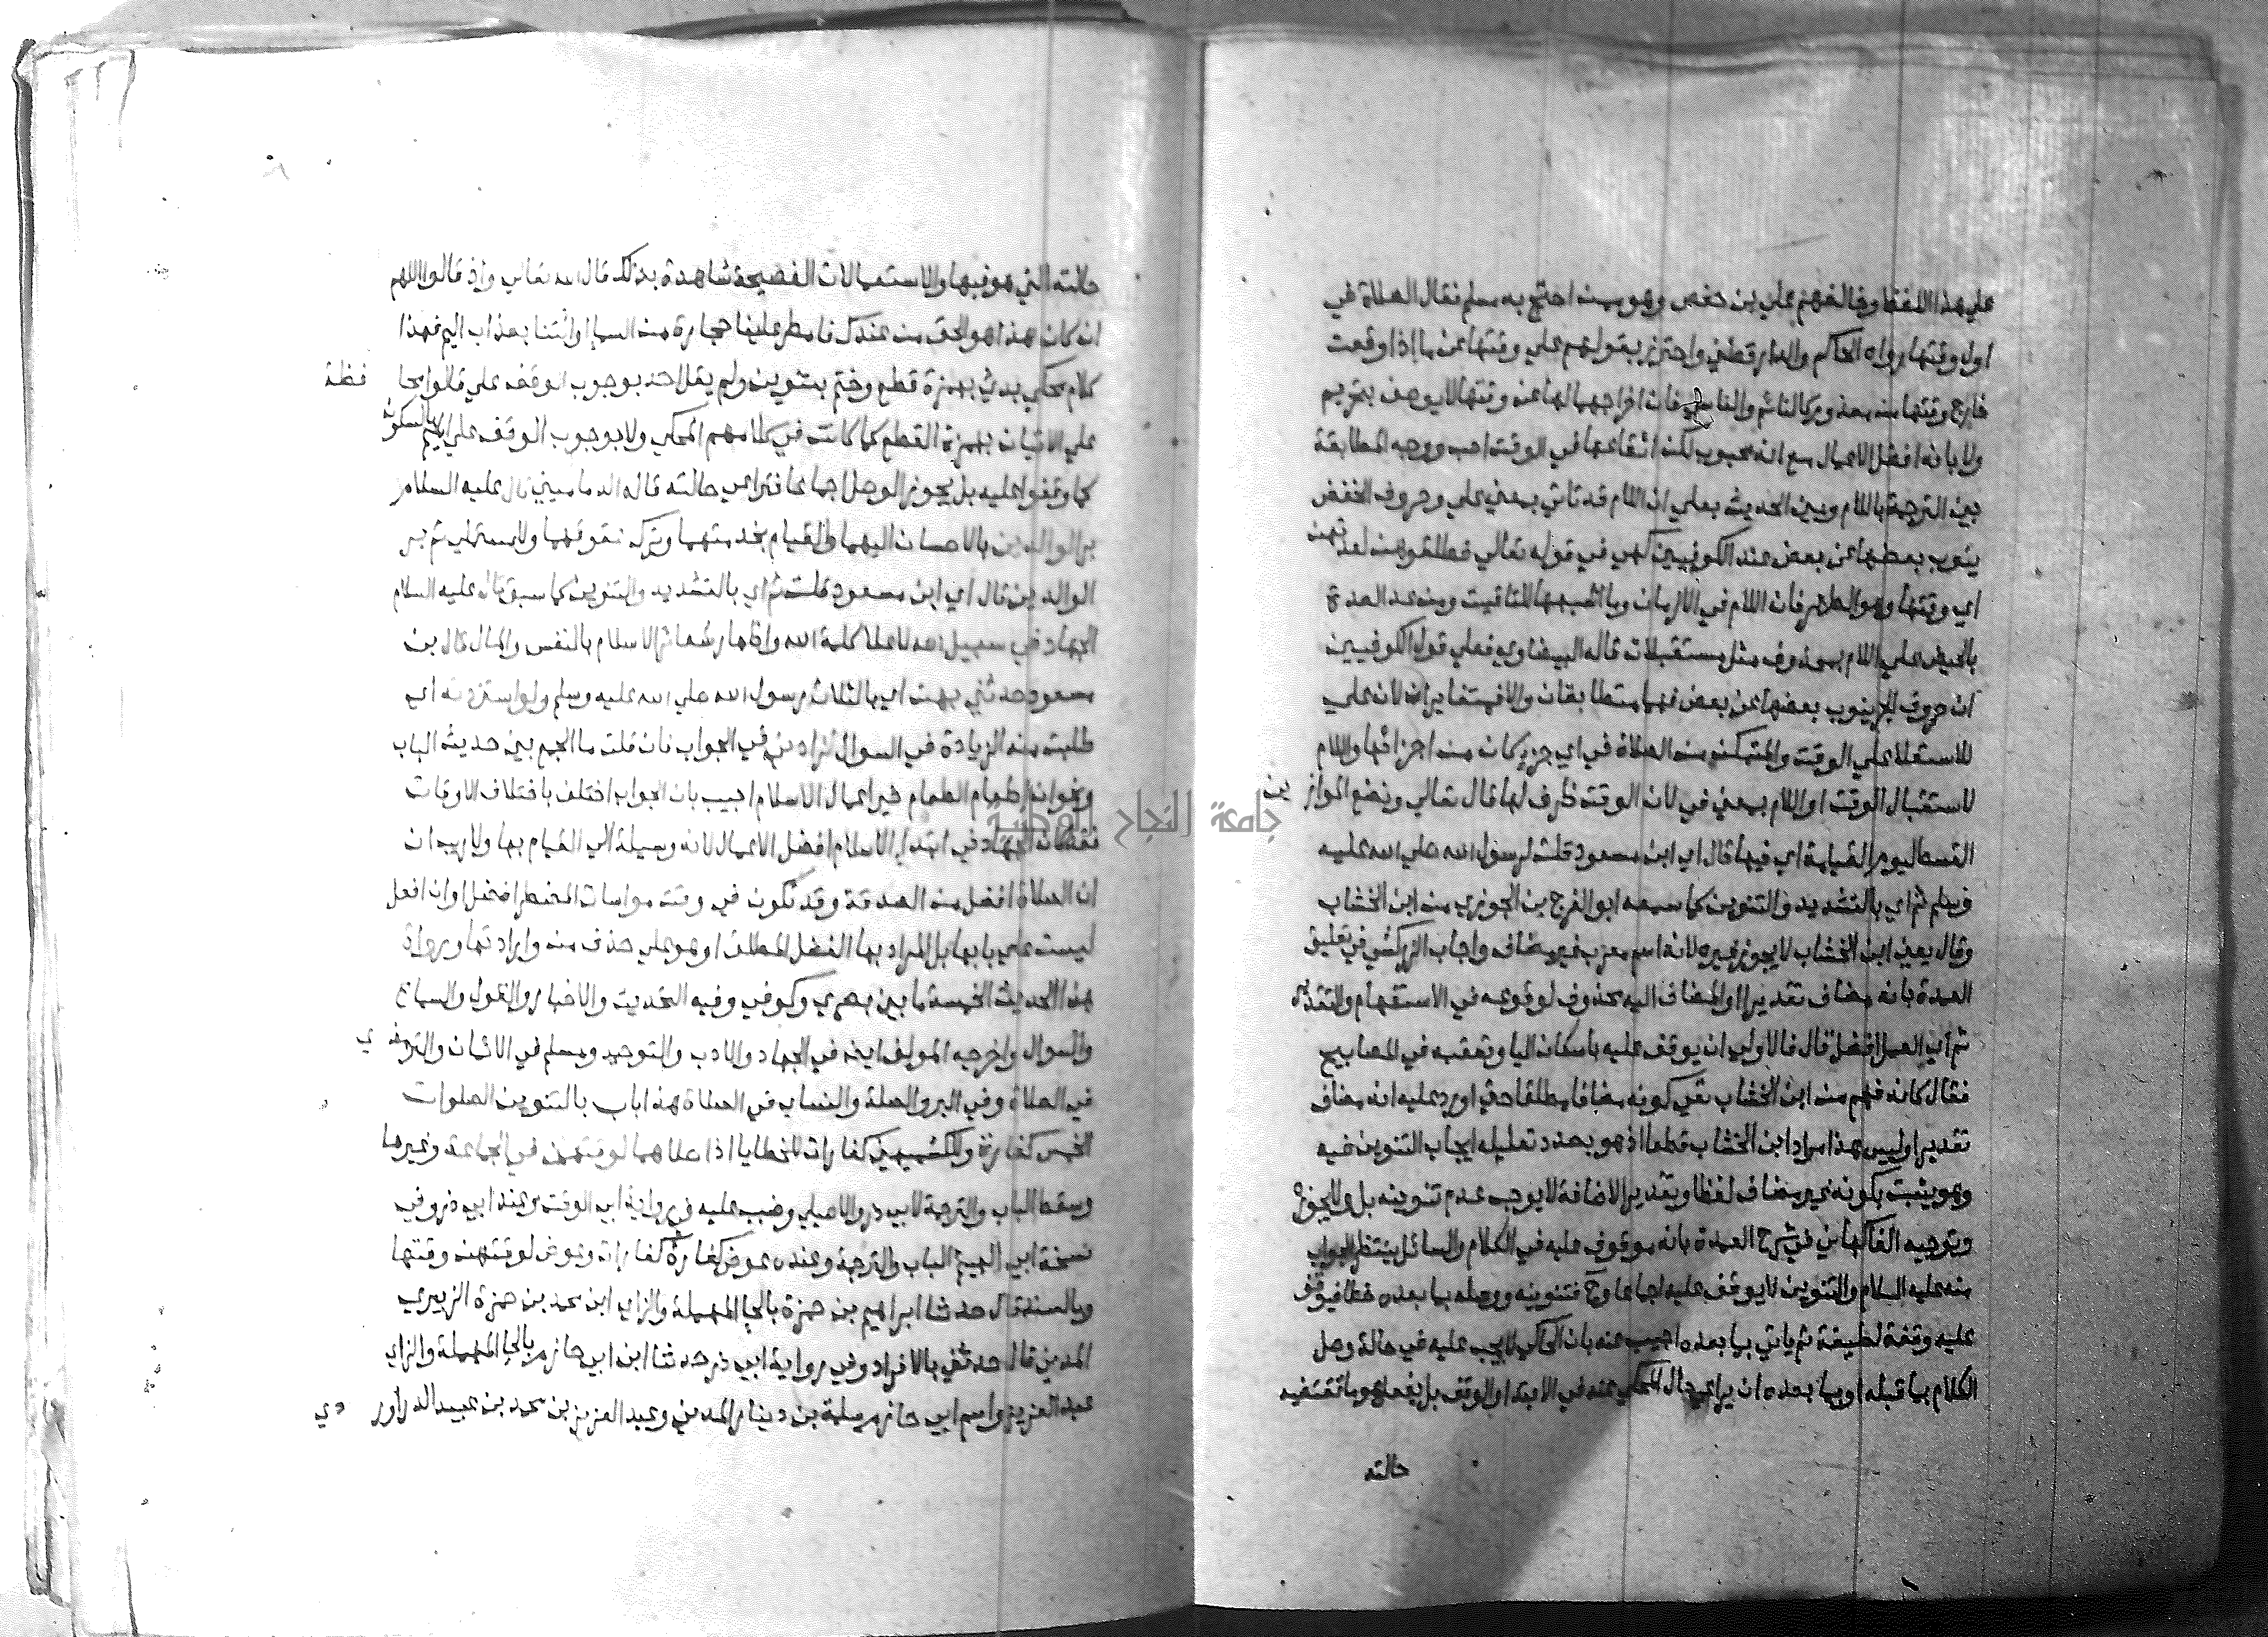 علي هذا اللفظ وخالفهم علي بن حفص وهو ممن احتج به مسلم فقال الصلاة في
اول وقتها رواه الحاكم والدارقطني واحترز بقولهم علي وقتها عن ما إذا وقعت
خارج وقتها من معذور كالنائم والناسي فان اخراجهما لها عن وقتها لا يوصف بتحريم
ولا بانه افضل الاعمال مع انه محبوب لكن ايقاعها في الوقت احب ووجه المطابقة
بين الترجمة باللام وبين الحديث بعلي ان اللام قد تاتي بمعني علي وحروف الخفض
ينوب بعضها عن بعض عند الكوفيين كهي في قوله تعالي فطلقوهن لعدتهن
اي وقتها وهو الطهر فان اللام في الازمان وما اشبهها للتاقيت ومن عد العدة
بالحيض علي اللام بمحذوف مثل مستقبلات قاله البيضاوي فعلي قول الكوفيين
ان حروف الجر ينوب بعضها عن بعض فهما متطابقان والا فمتغايران لان علي
للاستعلا علي الوقت والتمكن من الصلاة في اي جزء كان من اجزائها واللام
لاستقبال الوقت او اللام بمعني في لان الوقت ظرف لها قال تعالي ونضع الموازين
القسط ليوم القيامة اي فيها قال اي ابن مسعود قلت لرسول الله صلي الله عليه
وسلم ثم اي بالتشديد والتنوين كما سمعه ابو الفرج بن الجوزي من ابن الخشاب
وقال يعني ابن الخشاب لا يجوز غيره لانه اسم معرب غير مضاف واجاب الزركشي في تعليق
العمدة بانه مضاف تقديرا والمضاف اليه محذوف لوقوعه في الاستفهام والتقدير
ثم اي العمل افضل قال فالاولي ان يوقف عليه باسكان اليا وتعقبه في المصابيح
فقال كانه فهم من ابن الخشاب نفي كونه مضافا مطلقا حتي اورد عليه انه مضاف
تقديرا وليس هذا مراد ابن الخشاب قطعا اذ هو بصدد تعليله ايجاب التنوين فيه
وهو يثبت بكونه غير مضاف لفظا وبتقدير الاضافة لا يوجب عدم تنوينه بل ولا يجوزه
وتوجيه الفاكهاني في شرح العمدة بانه موقوف عليه في الكلام والسائل ينتظر الجواب
منه عليه السلام والتنوين لا يوقف عليه اجماعا وح فتنوينه ووصله بما بعده خطا فيوقف
عليه وقفة لطيفة ثم ياتي بما بعده اجيب عنه بان الحاكي لا يجب عليه في حالة وصل
الكلام بما قبله او بما بعده ان يراعي حال المحكي عنه في الابتدا والوقف بل يفعل هو ما تقتضيه
حالته
حالته التي هو فيها والاستعمالات الفصيحة شاهدة بذلك قال الله تعالي واذ قالوا اللهم
ان كان هذا هو الحق من عندك فامطر علينا حجارة من السما او ائتنا بعذاب اليم فهذا
كلام محكي بدئ بهمزة قطع وختم بتنوين ولم يقل احد بوجوب الوقف علي قالوا محافظة
علي الاتيان بهمزة القطع كما كانت في كلامهم المحكي ولا بوجوب الوقف علي اليم بالسكون
كما وقفوا عليه بل يجوز الوصل اجماعا فتراعي حالته قاله الدماميني قال عليه السلام
بر الوالدين بالاحسان اليهما والقيام بخدمتهما وترك عقوقهما ولا بستملي ثم بر
الوالدين قال اي ابن مسعود قلت ثم اي بالتشديد والتنوين كما سبق قال عليه السلام
الجهاد في سبيل الله لاعلا كلمة الله واظهار شعائر الاسلام بالنفس والمال قال بن
مسعود حدثني بهن اي بالثلاث رسول الله صلي الله عليه وسلم ولو استزدته اي
طلبت منه الزيادة في السوال لزادني في الجواب فان قلت ما الجمع بين حديث الباب
ونحو ان اطعام الطعام خير اعمال الاسلام اجيب بان الجواب اختلف باختلاف الاوقات
فقد كان الجهاد في ابتدا الاسلام افضل الاعمال لانه وسيلة الي القيام بها ولا ريب ان
ان الصلاة افضل من الصدقة وقد تكون في وقت مواسات المضطر افضل او ان افعل
ليست علي بابها بل المراد بها الفضل المطلق او هو علي حذف من وارادتها ورواة
هذا الحديث الخمسة ما بين بصري وكوفي وفيه التحديث والاخبار والقول والسماع
والسوال واخرجه المولف ايضا في الجهاد والادب والتوحيد ومسلم في الايمان والترمذي
في الصلاة وفي البر والصلة والنساي في الصلاة هذا باب بالتنوين الصلوات
الخمس كفارة وللكشميهني كفارات للخطايا اذا صلاهما لوقتهن في الجماعة وغيرها
وسقط الباب والترجمة لابي ذر والاصيلي وضبب عليه في رواية ابي الوقت وعند ابي ذر وفي
نسخة ابي الهيثم الباب والترجمة وعنده عوض كفارة كفارات وعوض لوقتهن وقتها
وبالسند قال حدثنا ابراهيم بن حمزة بالحا المهملة والزاي ابن محمد بن حمزة الزبيري
المدني قال حدثني بالافراد وفي رواية ابي ذر حدثنا ابن ابي حازم بالحا المهملة والزاي
عبد العزيز واسم ابي حازم سلمة بن دينار المدني وعبد العزيز بن محمد بن عبيد الدراوردي
جامعة النجاح الوطنية